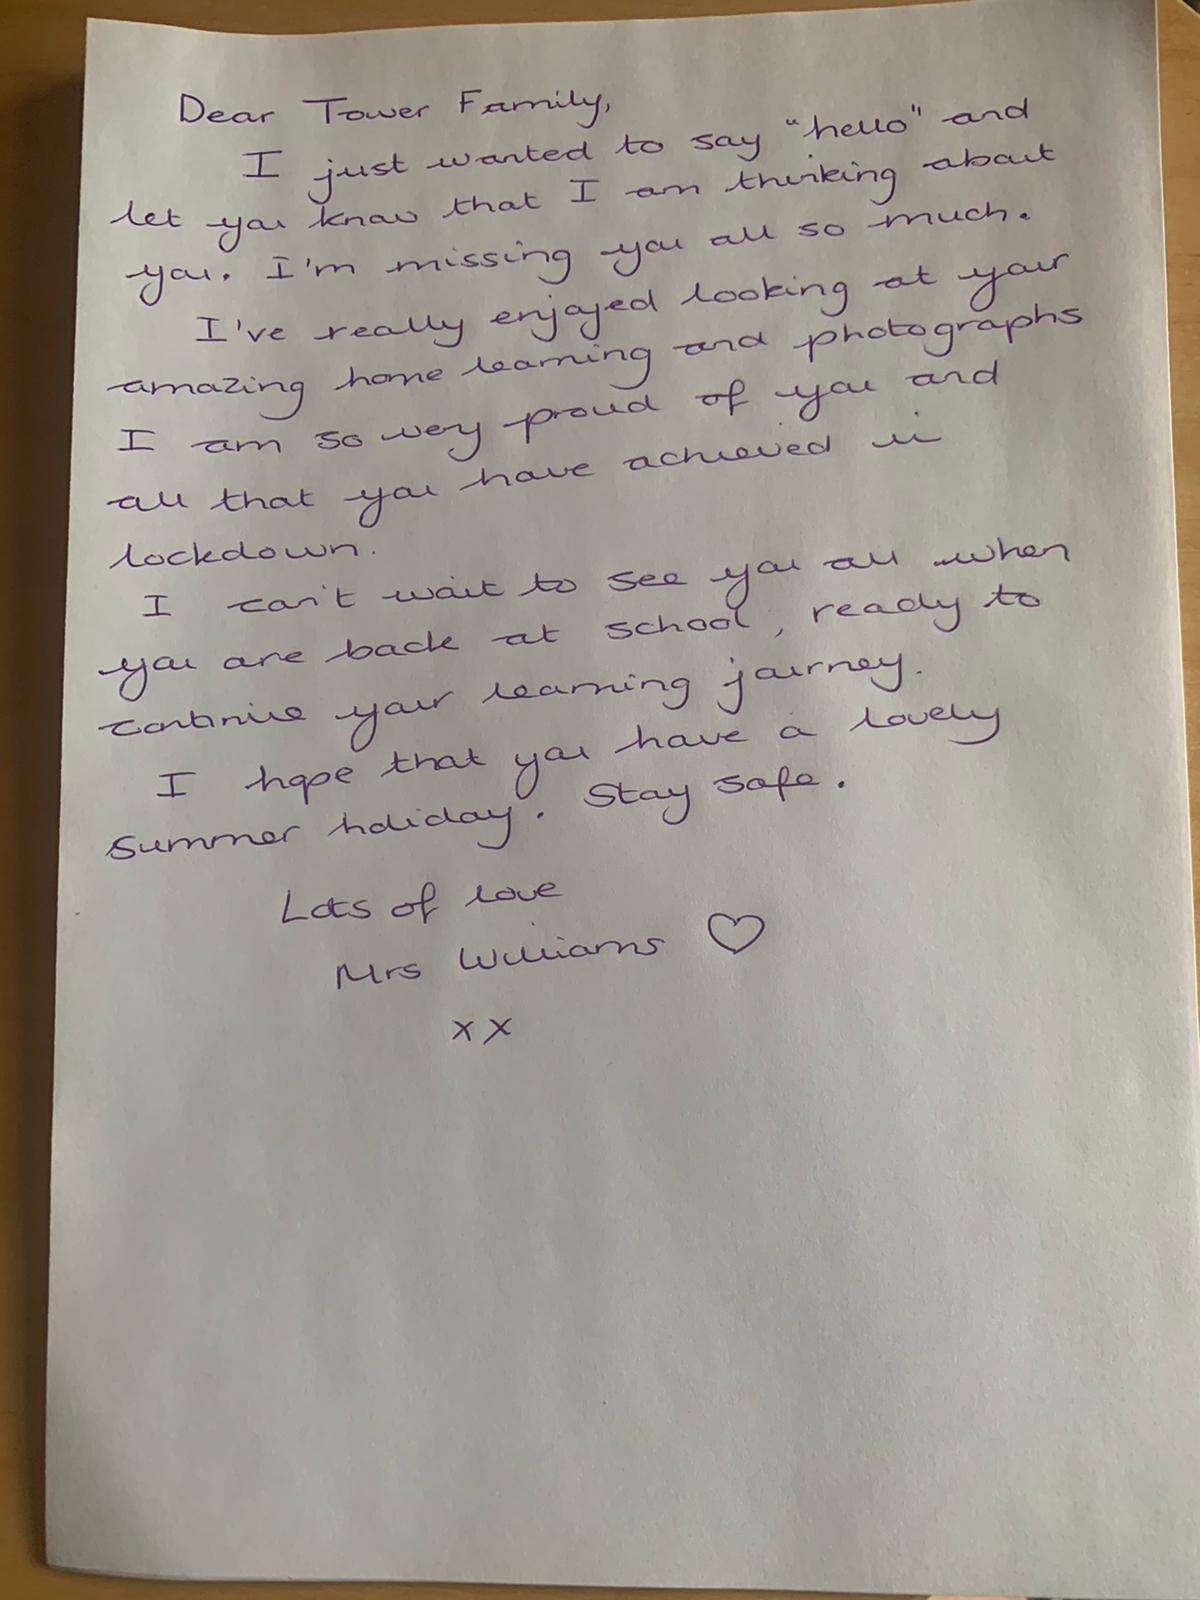 Dear Tower Family,
I just wanted to say "hello" and
let you know that I am thinking about
you. I'm missing you all so much.
I've really enjoyed looking at your
amazing home learning and photographs
I am so very proud of you and
all that you have achieved in
lockdown.
I can't wait to see you all when
you are back at school, ready to
continue your learning journey.
I hope that you have a lovely
summer holiday. Stay safe.
Lots of love
Mrs Williams ♡
xx